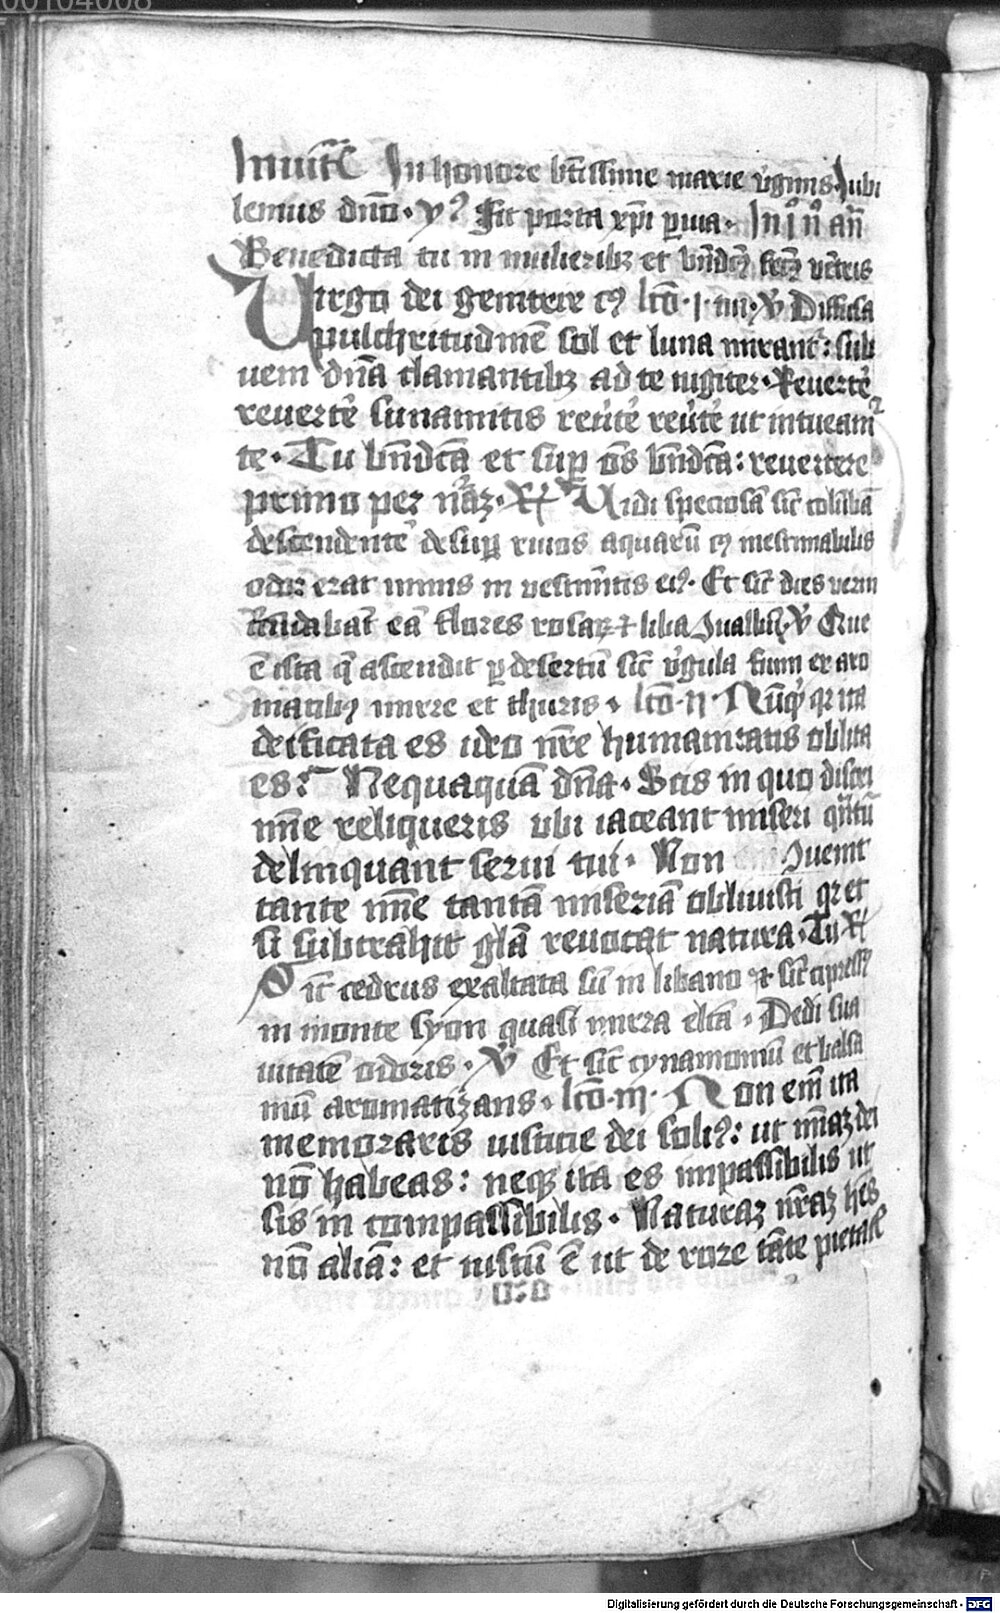 00104008
Inuit̄ In honore bt̄issime marie v̓ginis Iubi
lemus dn̄o · yꝰ Fit porta xp̄i ꝑuia · In i nº an̄
Benedicta tu in mulieribꝫ et bn̄dc̄ꝰ fructꝰ vētris
Virgo dei genitrix cū lc̄o · i · Diffusa
pulchritudinē sol et luna mirant᷑ : sub
uem dn̄a clamantibꝫ ad te iugiter · Reuert̓e
reuert̓e sunamitis reu̓t̓e reu̓t̓e ut intueam᷑
te · Tu bn̄dc̄a et suꝑ om̄s bn̄dc̄a : reuertere
primo per nāꝫ · R Uidi speciosā sic̄ colūbā
descendent̓e desuꝑ riuos aquarū cꝰ inestimabilis
odor erat nimis in vestim̄tis eiꝰ · Et sic̄ dies verni
circūdabāt eā flores rosaꝝ ⁊ lilia ꝯuallium · V̓ Que
ē ista q̄ ascendit ꝑ desertū sic̄ v̓gula fumi ex aro
matibꝫ mirre et thuris · lc̄o · ii · Nūqͥd qꝛ ita
deificata es ideo nr̄e humanitatis oblita
es? Nequaquā dn̄a · Scis in quo discri
mīe reliqueris vbi iaceant miseri qn̄tū
delinquant serui tui · Non ꝯuenit
tante mīe tantā miseriā obliuisci qꝛ et
si subtrahit glā reuocat natura · Tu R
Sic̄ cedrus exaltata sū in libano ⁊ sic̄ cipressꝰ
in monte syon quasi mirra elc̄a · Dedi sua
uitatē odoris · V̓ Et sic̄ cynamomū et balsa
mū aromatizans · lc̄o · iii · Non em̄ ita
memoraris iusticie dei soliꝰ : ut mīaꝫ dei
nō habeas : neqꝫ ita es impassibilis ut
sis in compassibilis · Naturaꝫ nr̄aꝫ hēs
nō aliā : et iustū ē ut de rore tāte pietatꝭ
Digitalisierung gefördert durch die Deutsche Forschungsgemeinschaft - DFG